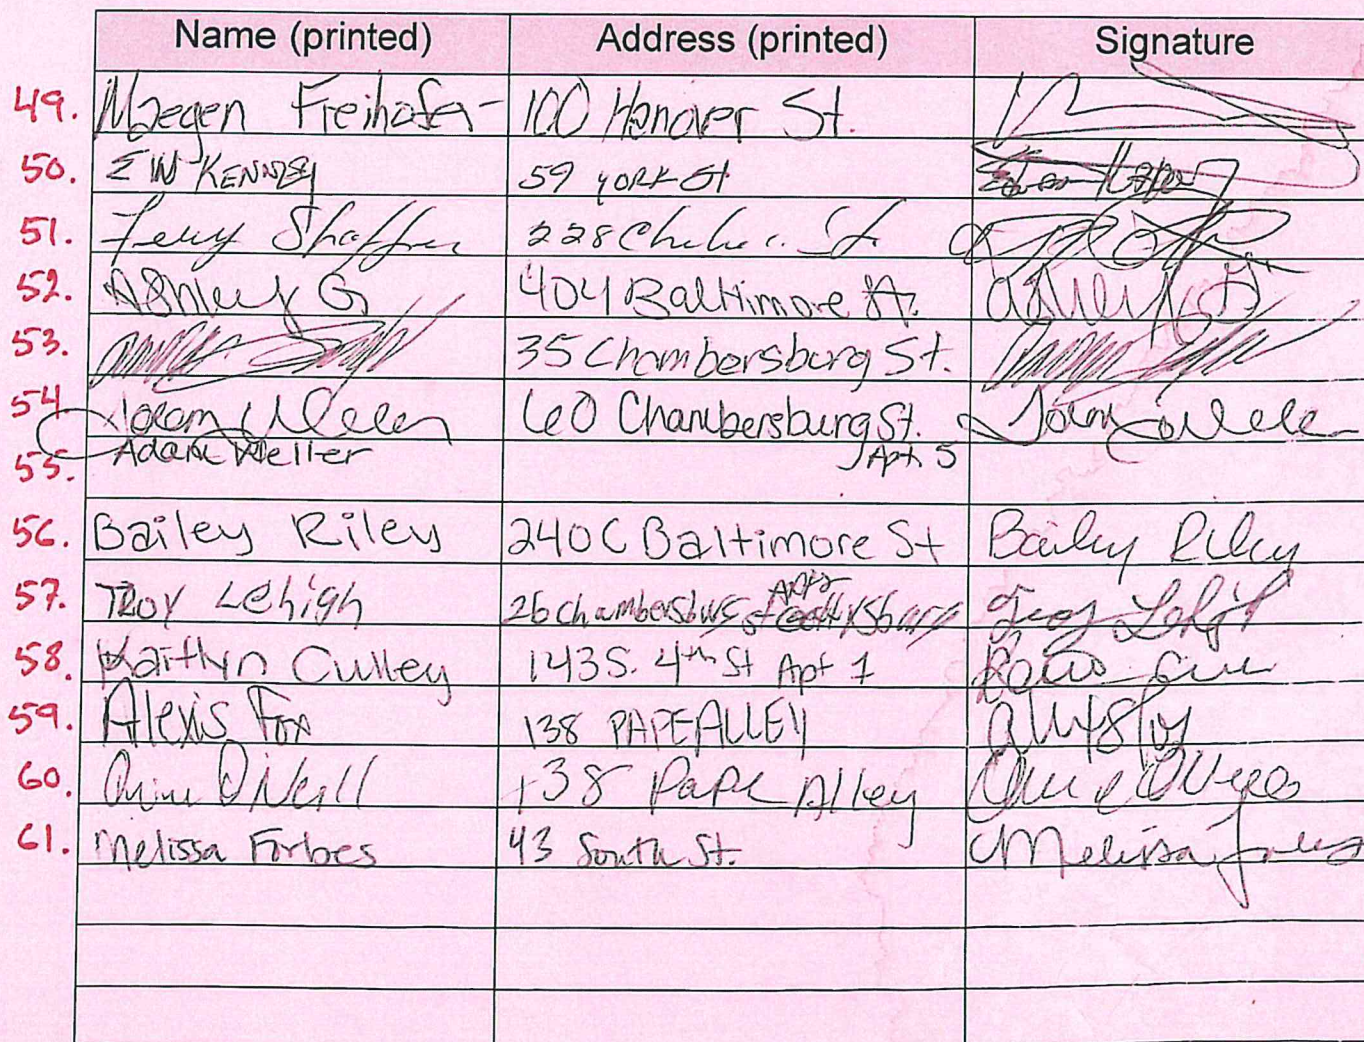 Name (printed) Address (printed) Signature
49. Maegen Freihofer 100 Hanover St.
50. EW KENNEY 59 YORK St
51. Terry Shaffer 228 St.
52. Ashley G. 404 Baltimore St. Ashley G
53. 35 Chambersburg St.
54. Adam Weller 60 Chambersburg St. Adam Weller
55. Adam Weller Apt. 5
56. Bailey Riley 240 C Baltimore St Bailey Riley
57. TROY LEhigh 26 Chambersburg St Apt 2 Troy Lehigh
58. Kaitlyn Culley 143 S. 4th St Apt 1
59. Alexis Fox 138 PAPE ALLEY
60. O'Neill 138 Pape Alley
61. Melissa Forbes 43 South St. Melissa Forbes